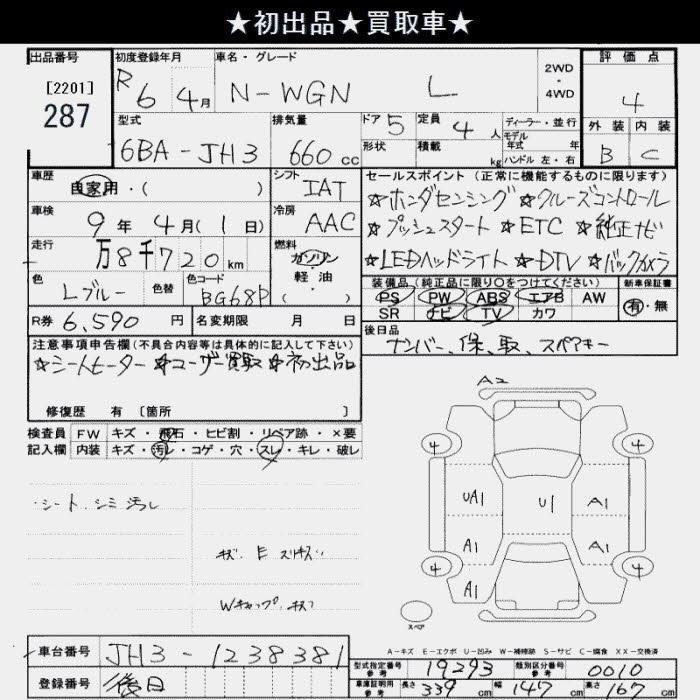 ★初出品★買取車★
出品番号 初度登録年月 車名・グレード 2WD・4WD 評価点
[2201] R 6 4月 N-WGN L 4
287
型式 排気量 ドア 5 定員 4人 ディーラー・並行 外装 内装
6BA-JH3 660cc 形状 積載 kg モデル年式 年 ハンドル 左・右 B C
車歴 自家用・( ) シフト IAT セールスポイント (正常に機能するものに限ります)
☆ホンダセンシング ☆クルーズコントロール
車検 9年 4月(1日) 冷房 AAC
☆プッシュスタート ☆ETC ☆純正ナビ
走行 万8千720km 燃料 ガソリン・軽・油( )
☆LEDヘッドライト ☆DTV ☆バックカメラ
色 Lブルー 色替 色コード BG68P
装備品(純正品に限り○をつけてください) 新車保証書
PS PW ABS エアB AW 有・無
SR ナビ TV カワ
R券 6,590円 名変期限 月 日
後日品 ナンバー、保、取、スペアキー
注意事項申告欄(不具合内容等は具体的に記入して下さい)
☆シートヒーター ☆ユーザー買取 ☆初出品
修復歴 有 [箇所 ]
検査員 FW キズ・飛石・ヒビ割・リペア跡・×要
記入欄 内装 キズ・汚レ・コゲ・穴・スレ・キレ・破レ
・シート、シミ汚レ
キズ・E スリキズ
Wキャップ キズ
A2
4 4
UA1 U1 A1
A1 A1
4 4
A1
スペア
A-キズ E-エクボ U-凹み W-補修跡 S-サビ C-腐食 XX-交換済
車台番号 JH3-1238381
登録番号 後日
型式指定番号 参考 19293 類別区分番号 参考 0010
車庫証明用 参考 長さ 339cm 幅 147cm 高さ 167cm